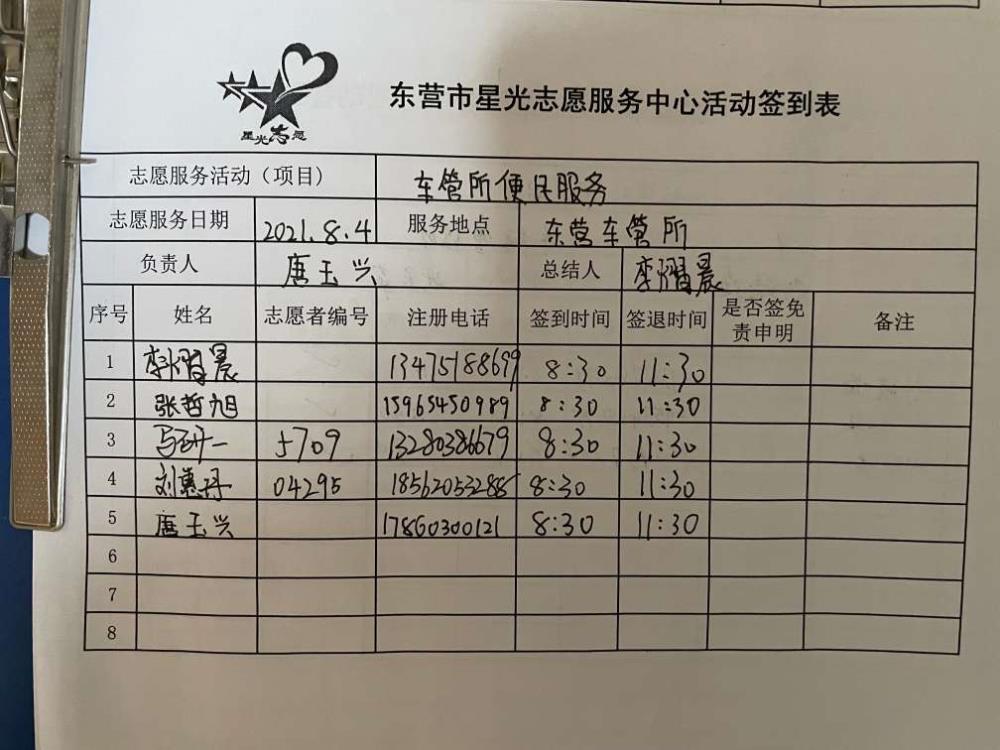 星光志愿
东营市星光志愿服务中心活动签到表
志愿服务活动（项目） 车管所便民服务
志愿服务日期 2021.8.4 服务地点 东营车管所
负责人 唐玉兴 总结人 李熠晨
序号 姓名 志愿者编号 注册电话 签到时间 签退时间 是否签免责申明 备注
1 李熠晨 13475188699 8:30 11:30
2 张哲旭 15965450989 8:30 11:30
3 马研一 5709 13280386679 8:30 11:30
4 刘惠丹 04295 18562053288 8:30 11:30
5 唐玉兴 17860300121 8:30 11:30
6
7
8